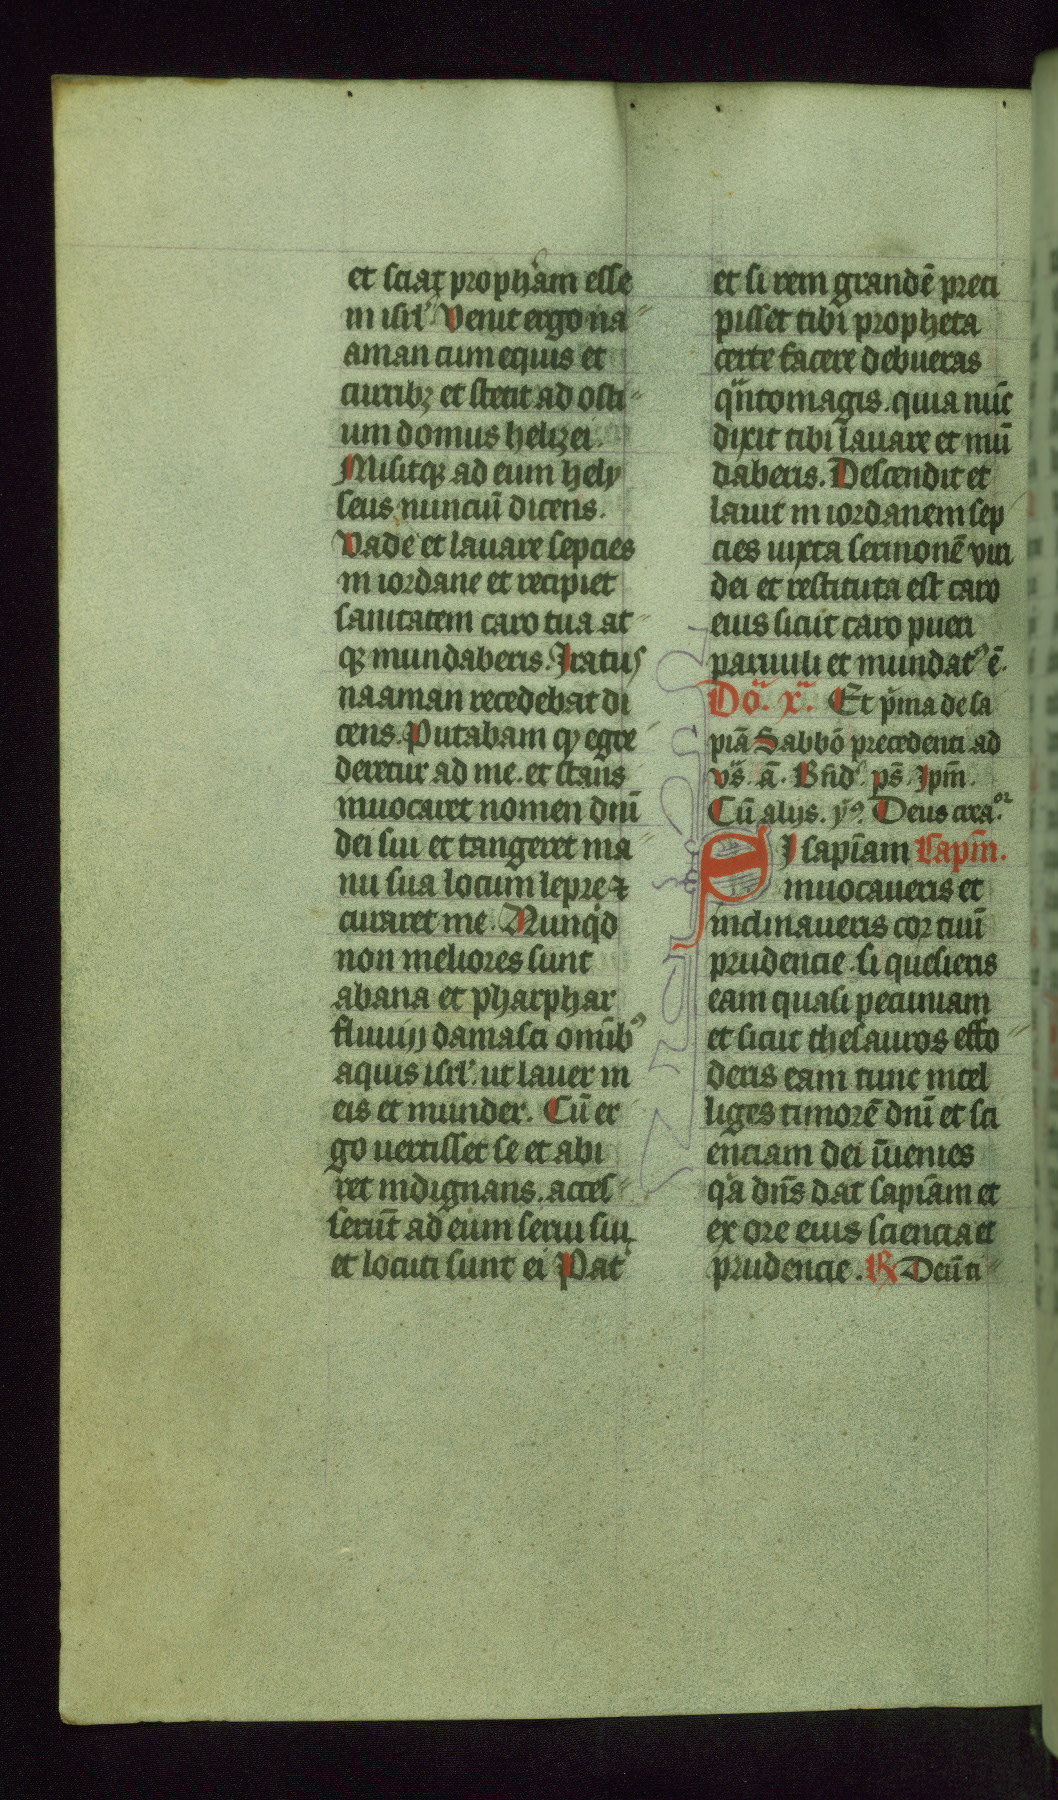 et sciat proph'am esse
in isrl' Venit ergo na
aman cum equis et
curribꝫ et stetit ad osti
um domus helizei.
Misitqꝫ ad eum hely
seus nunciū dicens.
Vade et lauare sepcies
in iordane et recipiet
sanitatem caro tua at
qꝫ mundaberis. Iratus
naaman recedebat di
cens. Putabam qꝫ egre
deretur ad me. et stans
inuocaret nomen dn̄i
dei sui et tangeret ma
nu sua locum lepre ⁊
curaret me. Nunqid
non meliores sunt
abana et pharphar
fluuij damasci omībꝰ
aquis isrl'. ut lauer in
eis et munder. Cū er
go uertisset se et abi
ret indignans. acces
serūt ad eum serui sui
et locuti sunt ei Pat'
et si rem grandē preci
pisset tibi propheta
certe facere debueras
qntomagis. quia nūc
dixit tibi lauare et mū
daberis. Descendit et
lauit in iordanem sep
cies iuxta sermonē viri
dei et restituta est caro
eius sicut caro pueri
paruuli et mundatꝰ ē.
Dō. x. Et pima de sa
piā Sabbō precedenti ad
vs̄. ā. Bn̄d'. ps̄. Ipm̄.
Cū alijs. yꝰ. Deus creaor.
SI sapīam Sapīn.
inuocaueris et
inclinaueris cor tuū
prudencie. si quesieris
eam quasi pecuniam
et sicut thesauros effo
deris eam tunc intel
liges timorē dn̄i et sci
enciam dei īuenies
qia dn̄s dat sapīam et
ex ore eius sciencia et
prudencie. ℟ Decū ti